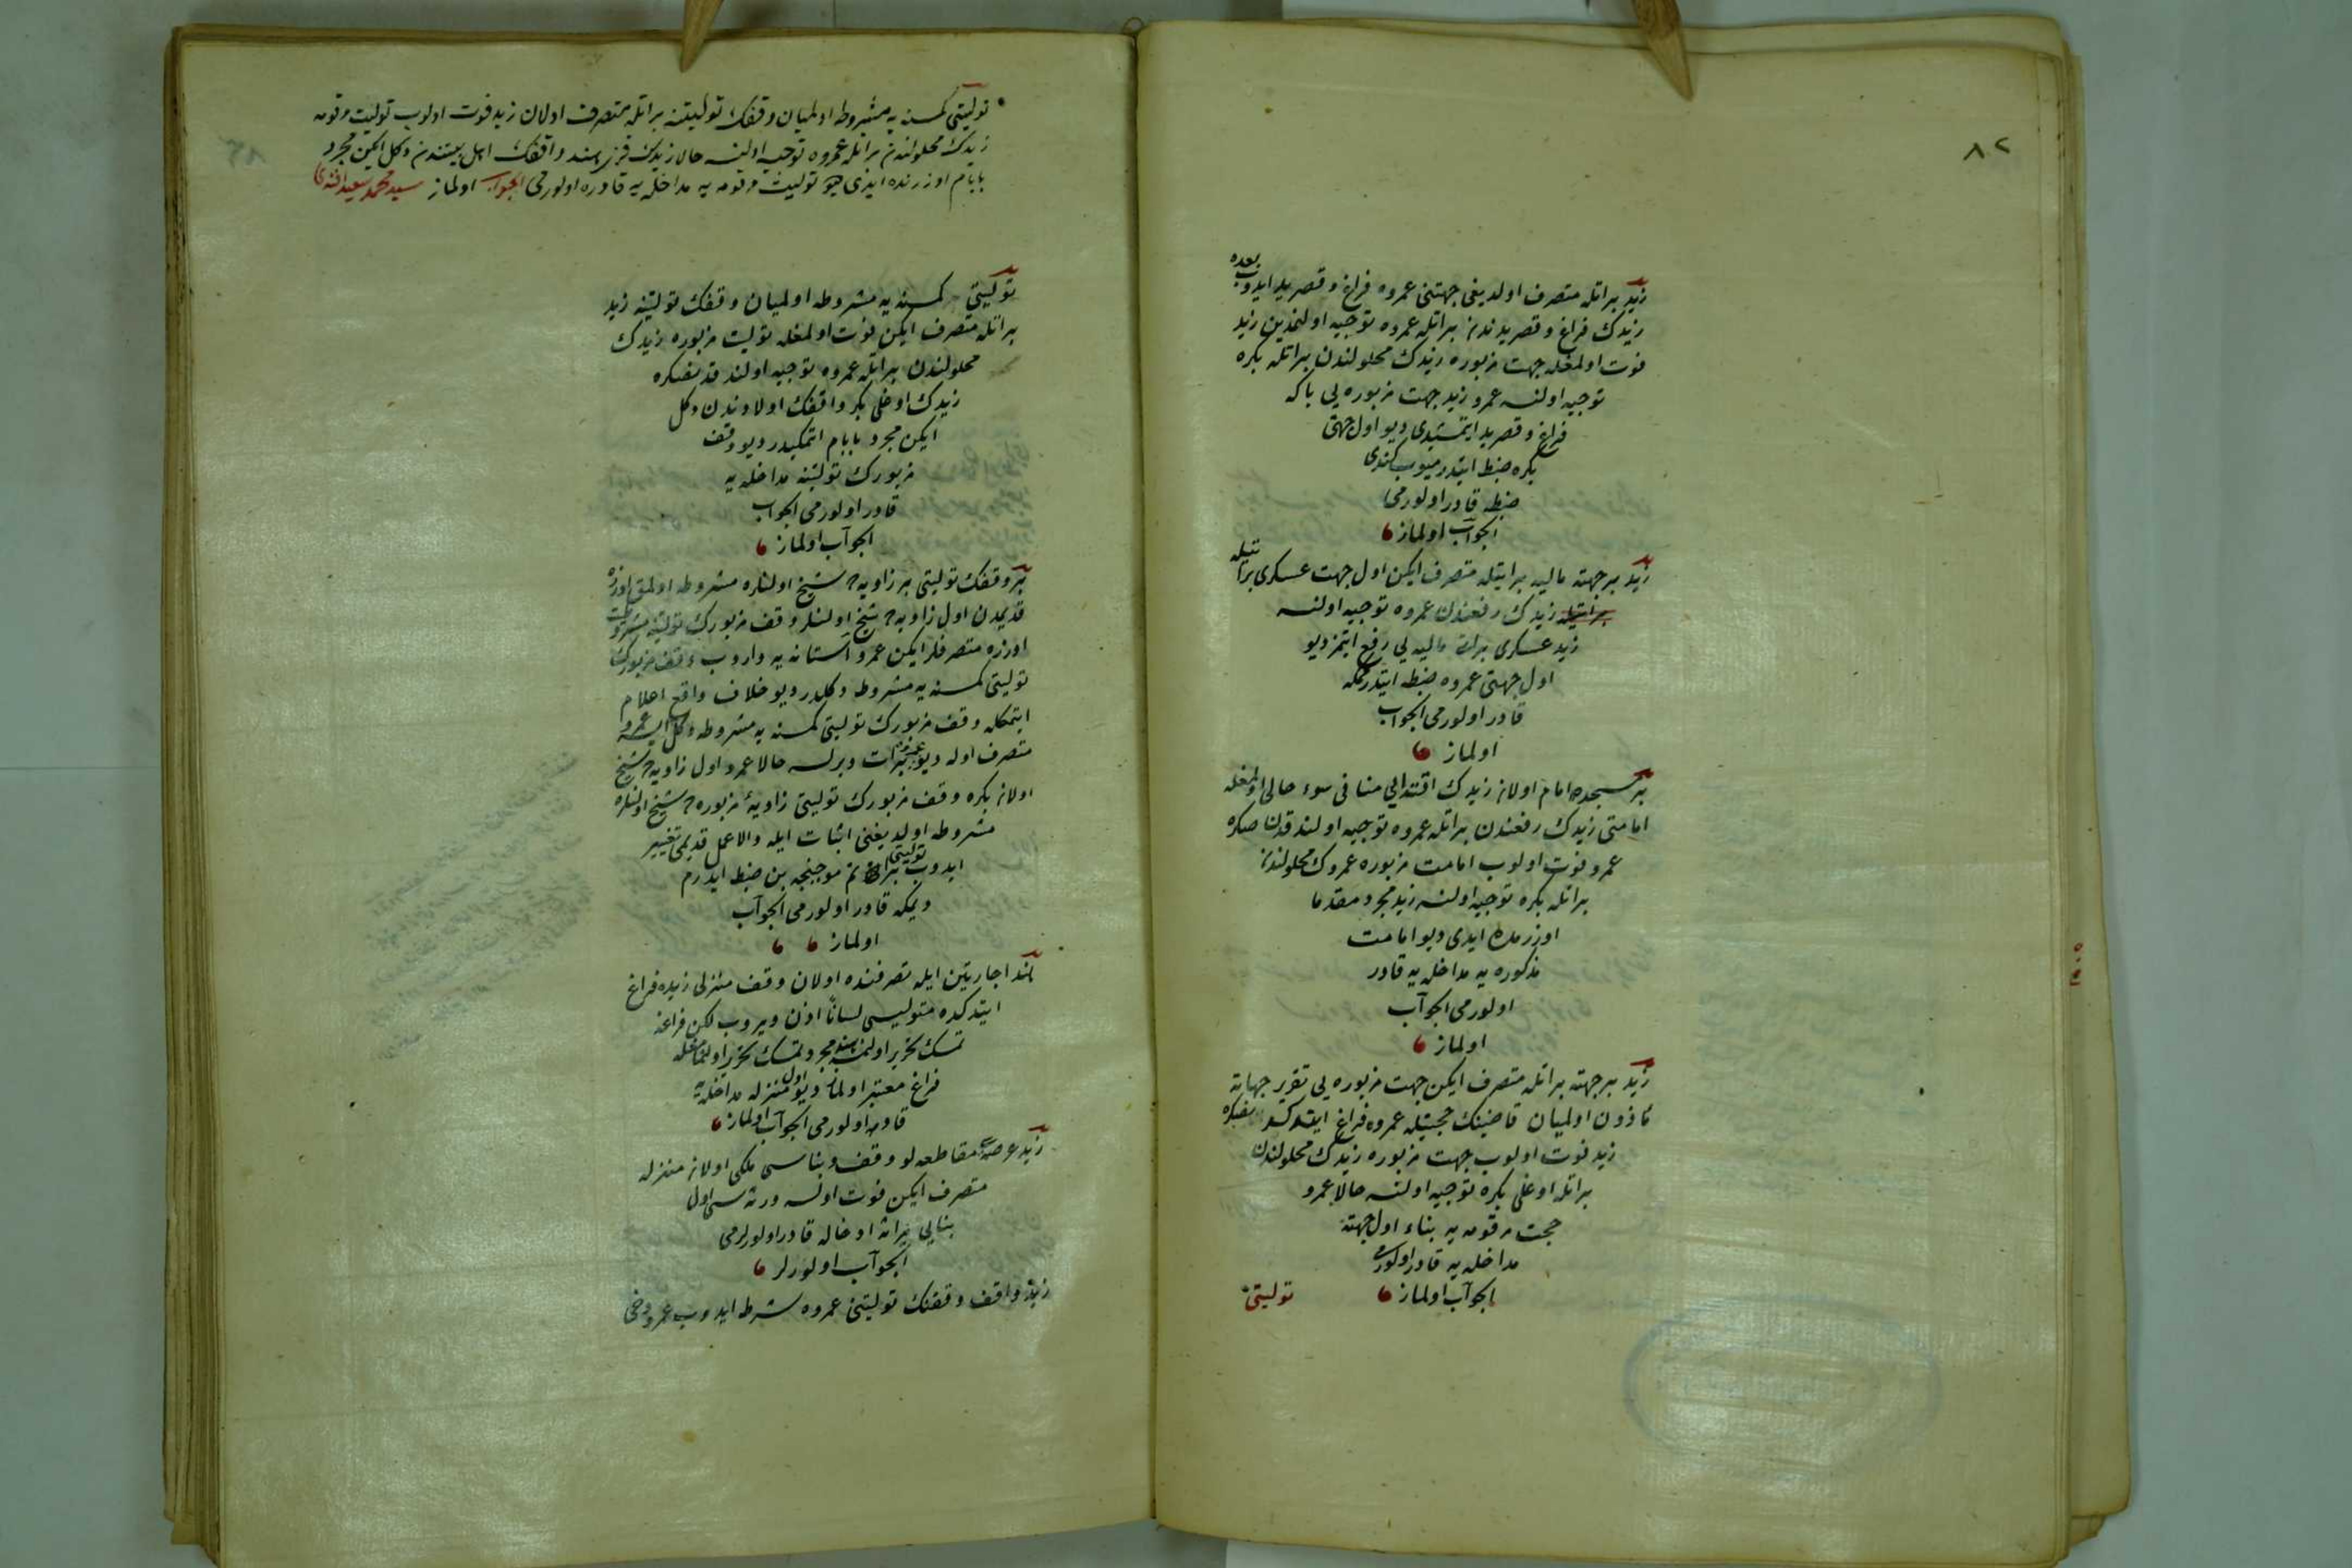 ٨٢
زید براتله متصرف اولدیغی جهتنی عمروه فراغ و قصرید ایدوب بعده
زیدك فراغ و قصریدندن براتله عمروه توجیه اولنمدین زید
فوت اولمغله جهت مزبوره زیدك محلولندن براتله بكره
توجیه اولنسه عمرو زید جهت مزبوره یی باكه
فراغ و قصرید ایتمشیدی دیو اول جهتی
بكره ضبط ایتدرمیوب كندی
ضبطه قادر اولورمی
الجواب اولماز
زید بر جهته مالیه براتیله متصرف ایكن اول جهت عسكری براتیله
زیدك رفعندن عمروه توجیه اولنسه
زید عسكری برات مالیه یی رفع ایتمز دیو
اول جهتی عمروه ضبط ایتدرمكه
قادر اولورمی الجواب
اولماز
بر مسجده امام اولان زیدك اقتدایی منافی سوء حالی اولمغله
امامتی زیدك رفعندن براتله عمروه توجیه اولندقدن صكره
عمرو فوت اولوب امامت مزبوره عمروك محلولندن
براتله بكره توجیه اولنسه زید مجرد مقدما
اوزرمده ایدی دیو امامت
مذكوره یه مداخله یه قادر
اولورمی الجواب
اولماز
زید بر جهته براتله متصرف ایكن جهت مزبوره یی تقریر جهاته
مأذون اولمیان قاضینك حجتیله عمروه فراغ ایتدكدنصكره
زید فوت اولوب جهت مزبوره زیدك محلولندن
براتله اوغلی بكره توجیه اولنسه حالا عمرو
حجت مرقومه یه بناء اول جهته
مداخله یه قادر اولورمی
الجواب اولماز
تولیتی
تولیتی كمسنه یه مشروطه اولمیان وقفك تولیتنه براتله متصرف اولان زید فوت اولوب تولیت مرقومه
زیدك محلولندن براتله عمروه توجیه اولنسه حالا زیدك قزی هند واقفك اهل بیتندن دكل ایكن مجرد
بابام اوزرنده ایدی دیو تولیت مرقومه یه مداخله یه قادره اولورمی الجواب اولماز سید محمد سعید افندی
تولیتی كمسنه یه مشروطه اولمیان وقفك تولیتنه زید
براتله متصرف ایكن فوت اولمغله تولیت مزبوره زیدك
محلولندن براتله عمروه توجیه اولندقدنصكره
زیدك اوغلی بكر واقفك اولادندن دكل
ایكن مجرد بابام اتمكیدر دیو وقف
مزبورك تولیتنه مداخله یه
قادر اولورمی الجواب
الجواب اولماز
بر وقفك تولیتی بر زاویه ده شیخ اولنلره مشروطه اولمق اوزره
قدیمدن اول زاویه ده شیخ اولنلر وقف مزبورك تولیتنه مشروطیت
اوزره متصرفلر ایكن عمرو آستانه یه واروب وقف مزبورك
تولیتی كمسنه یه مشروطه دكلدر دیو خلاف واقع اعلام
ایتمكله وقف مزبورك تولیتی كمسنه یه مشروطه دكل ایسه عمرو
متصرف اوله دیو برات ویرلسه حالا عمرو اول زاویه ده شیخ
اولان بكره وقف مزبورك تولیتی زاویۀ مزبوره ده شیخ اولنلره
مشروطه اولدیغنی اثبات ایله والا عمل قدیمی تغییر
ایدوب تولیتی براتم موجبنجه بن ضبط ایدرم
دیمكه قادر اولورمی الجواب
اولماز
هند اجارتین ایله تصرفنده اولان وقف منزلی زیده فراغ
ایتدكده متولیسی لساناً اذن ویروب لكن فراغه
تمسك تحریر اولنمسه هند مجرد تمسك تحریر اولنمامغله
فراغ معتبر اولماز دیو اول منزله مداخله یه
قادره اولورمی الجواب اولماز
زید عرصه سی مقاطعه لو وقف و بناسی ملكی اولان منزله
متصرف ایكن فوت اولسه ورثه سی اول
بنایی میراثه ادخاله قادر اولورلرمی
الجواب اولورلر
زید واقف وقفنك تولیتنی عمروه شرط ایدوب عمرو دخی